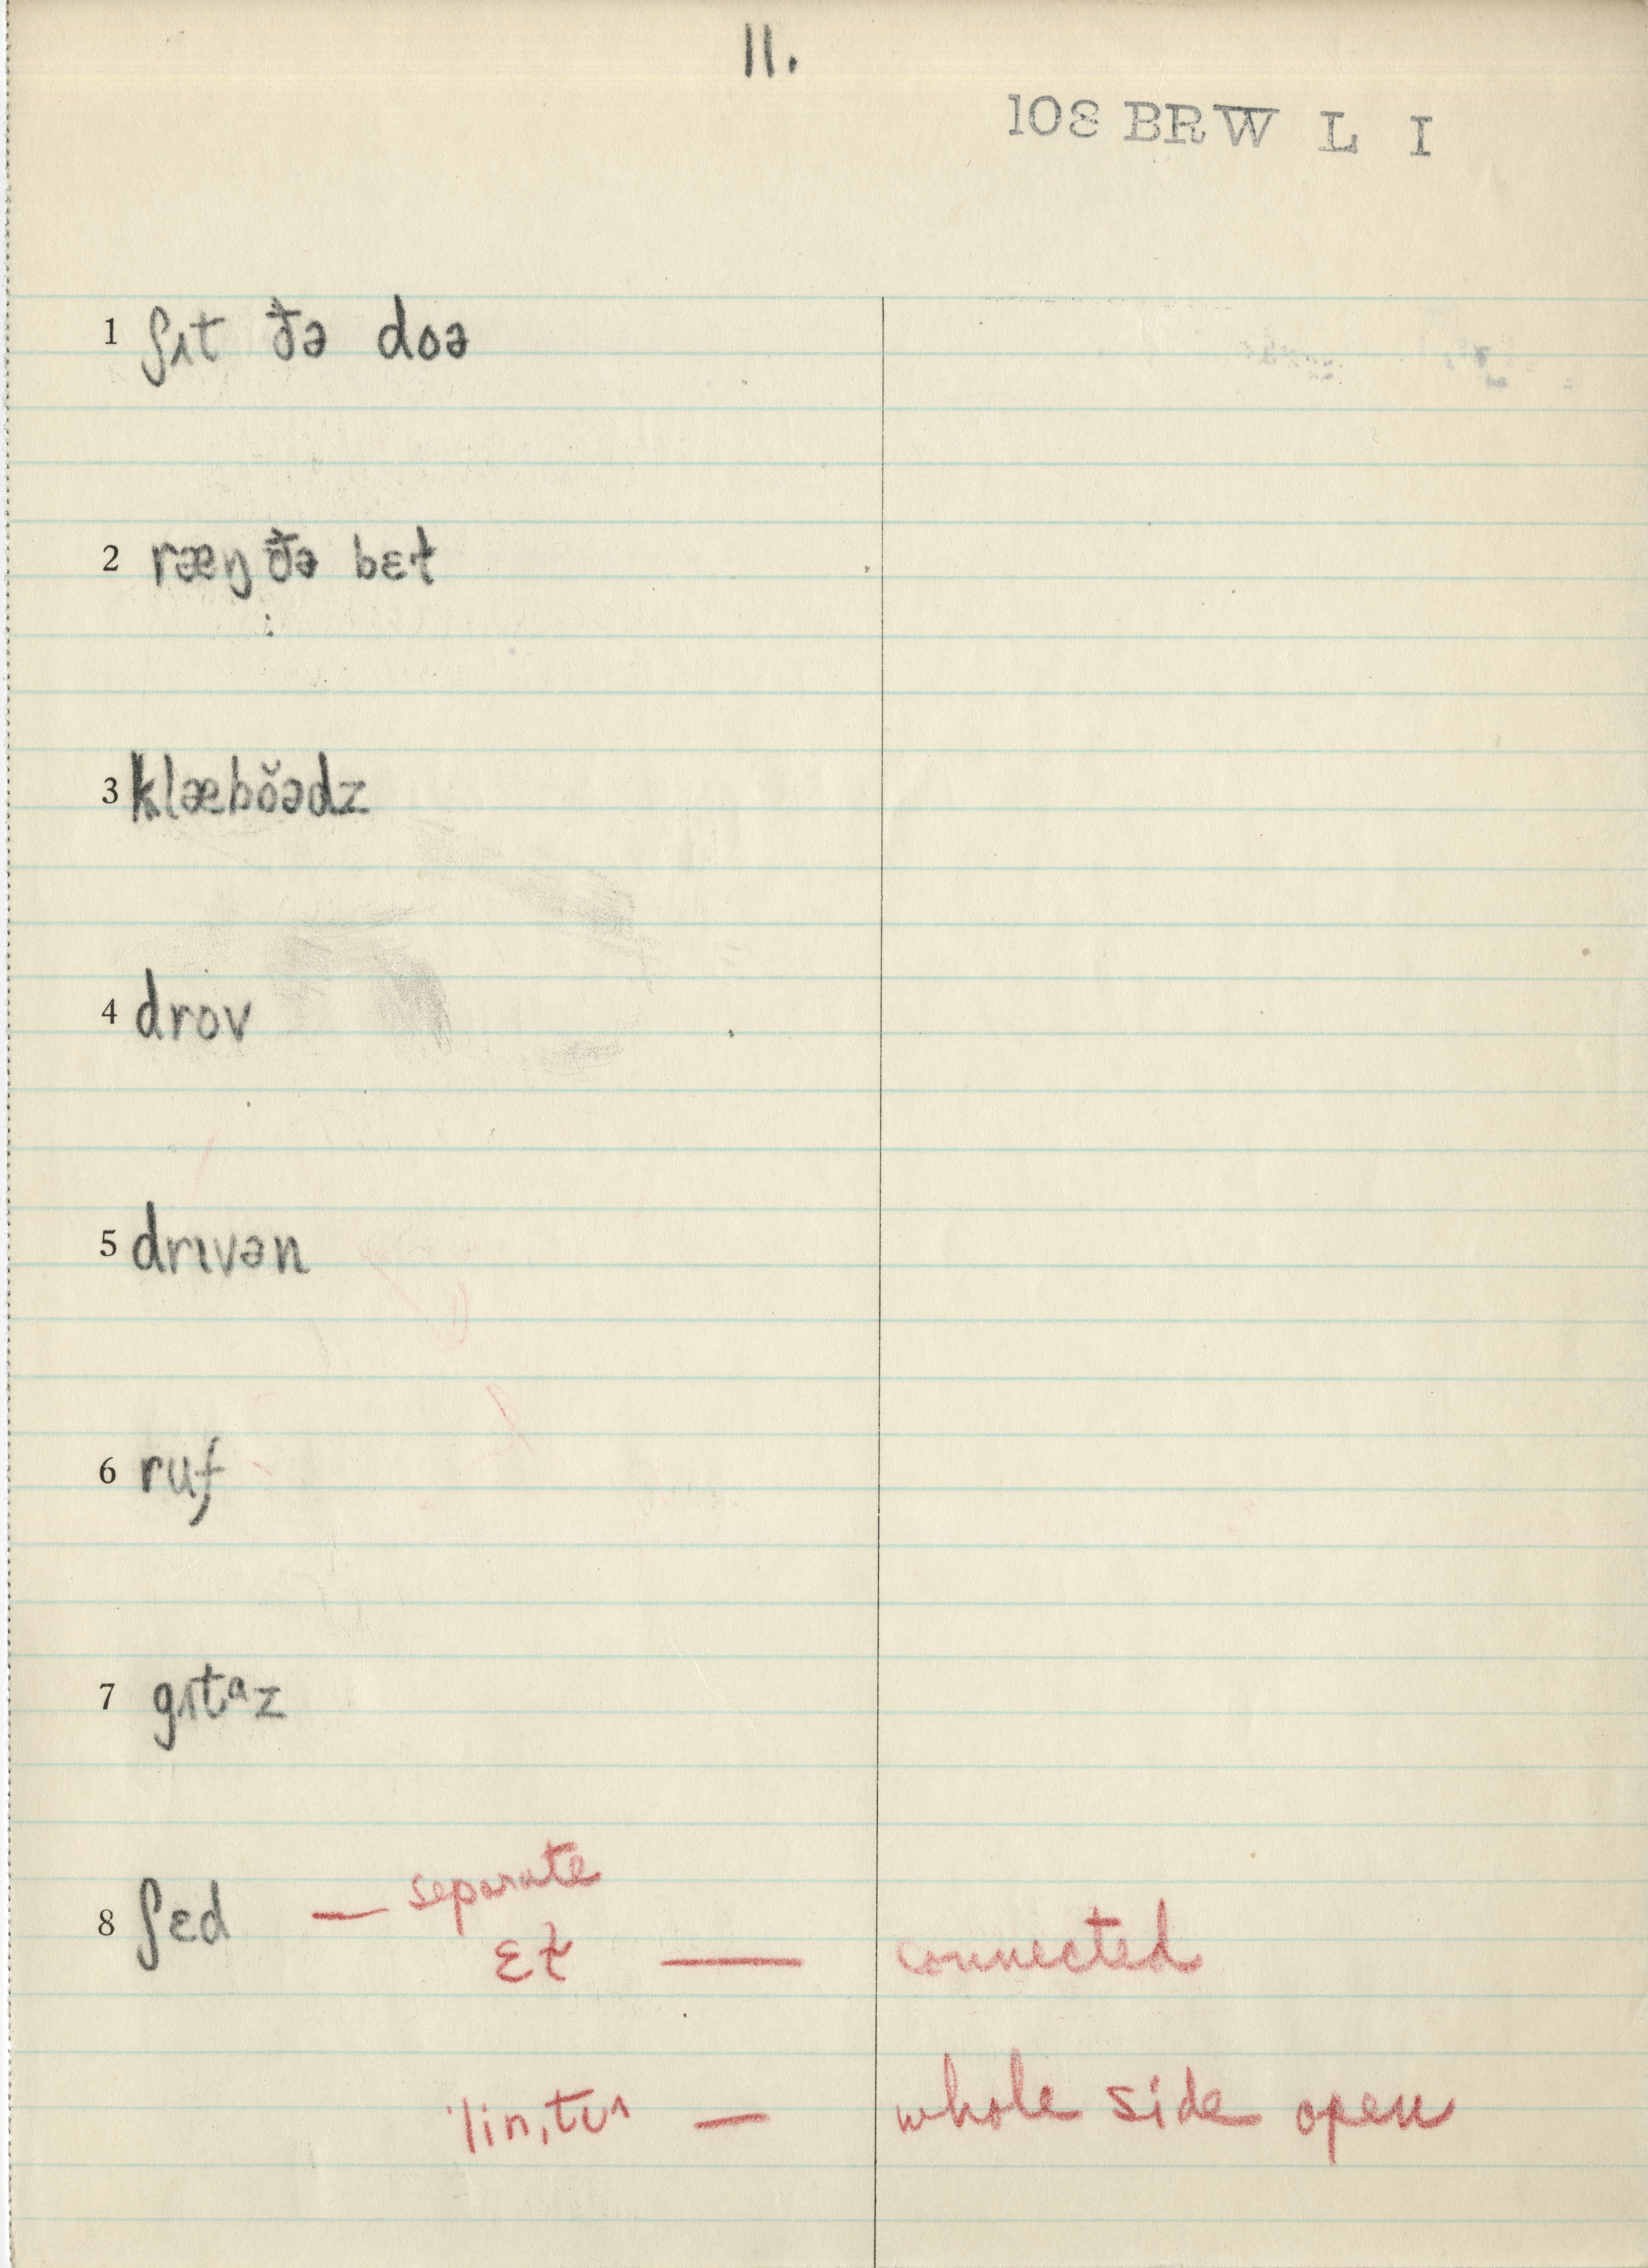 11.
108 BRW L I
1 ʃɪt ðə doə
2 ræŋ ðə bɛt
3 klæbŏədz
4 drov
5 drɪvən
6 ruf
7 gɪtᵊz
8 ʃɛd — separate
ɛt — connected
ˈlinˌtʊ — whole side open